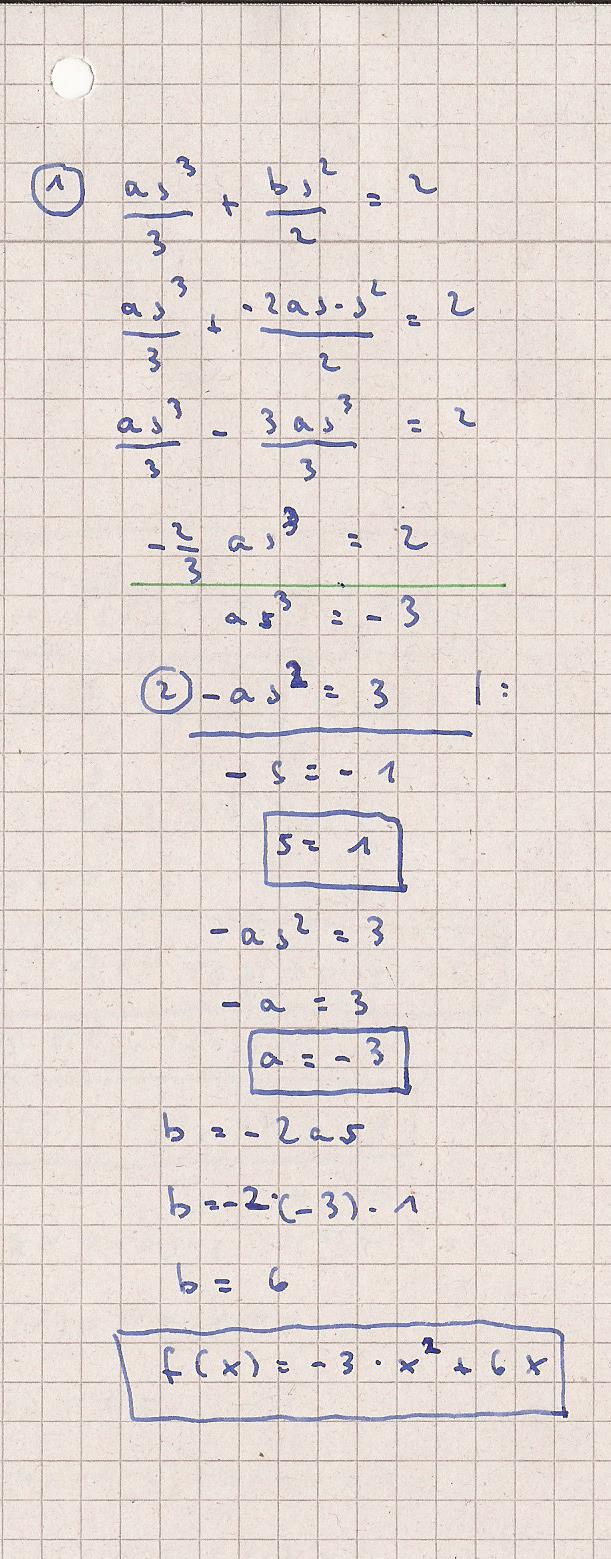 ① as³/3 + bs²/2 = 2
as³/3 + -2as·s²/2 = 2
as³/3 - 3as³/3 = 2
-2/3 as³ = 2
as³ = -3
② -as² = 3 | :
-s = -1
s = 1
-as² = 3
-a = 3
a = -3
b = -2as
b = -2·(-3)·1
b = 6
f(x) = -3·x² + 6x